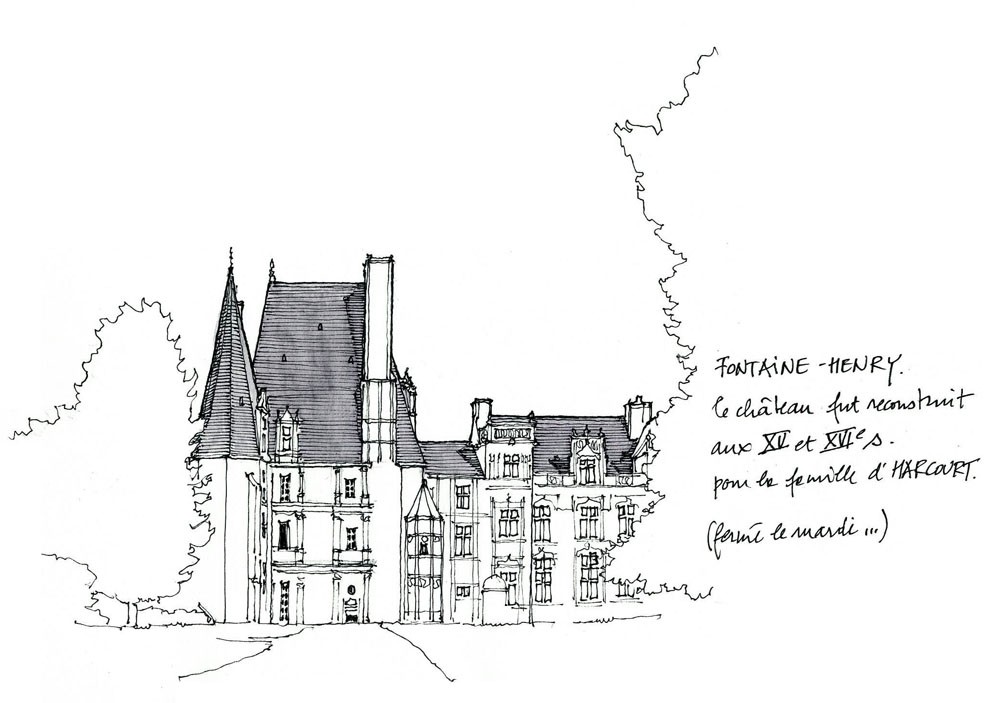 FONTAINE-HENRY.
le château fut reconstruit
aux XV et XVIe s.
pour la famille d'HARCOURT.
(fermé le mardi ...)